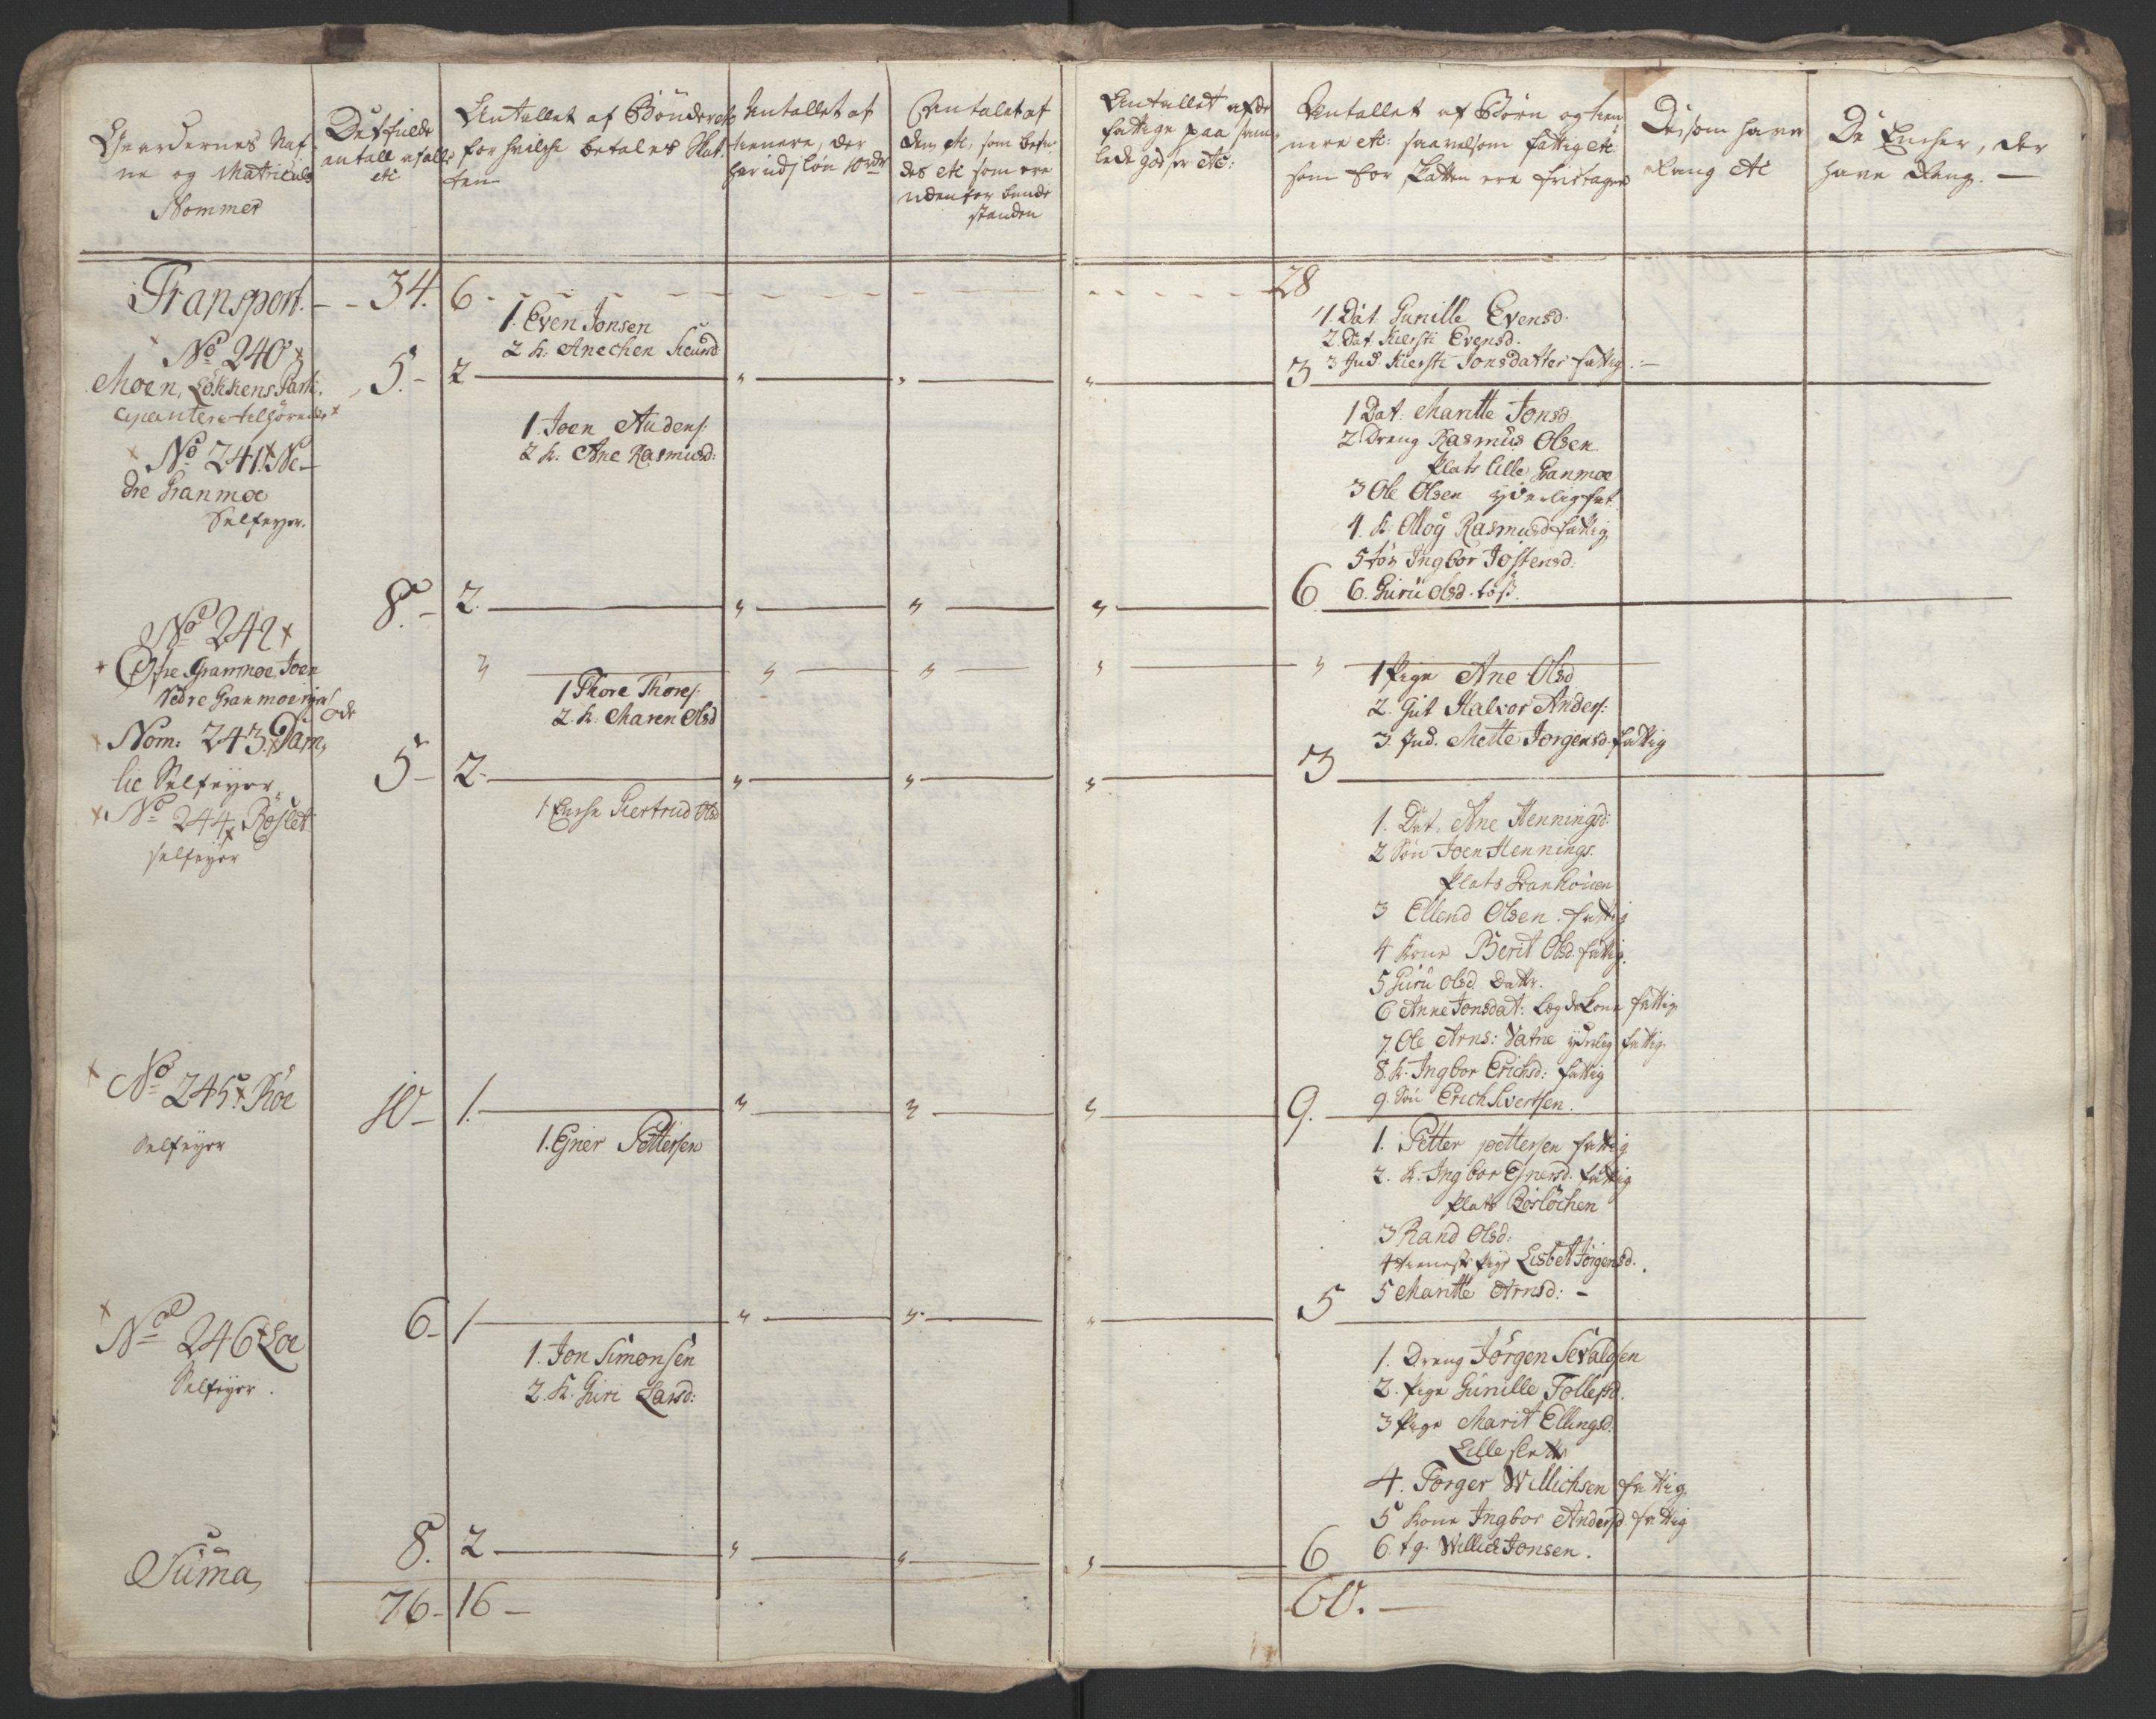 Gaardernes Naf
ne og Matriculs
Nommer
Det fulde
antall af alle
etc
Antallet af Bönder etc
for hvilche betales Skat
ten
Antallet af
tienere, der
har udj lön 10 rdr
Antalet af
dem etc, som befin
des etc som ere
udenfor bunde
standen
Antallet af de
fattige paa sam
lede godser etc:
Antallet af Börn og tien
nere etc: saavelsom fattig etc:
som for Skatten ere fritagne
De som have
Rang etc
De Encher, der
have Rang. —
Transport. — — 34. 6 - - - 28
No 240
Moen, Löckens Parti,
cipantere tilhörende
5. — 2 — " — " — " — 3
1. Even Jonsen
2 K. Anechen Siursd
1. Dat Gunille Evensd.
2. Dat. Kiersti Evensd.
3 Ind. Kiersti Jonsdatter fattig. —
No 241. Ne—
dre Granmoe
Selfeyer.
1. Joen Andens:
2 K. Ane Rasmusd:
1 Dat: Maritte Jonsd.
2 Dreng Rasmus Olsen
Plats lille Granmoe
3 Ole Olsen yderlig fat.
4. K. Olloug Rasmusd fattig
5 tös Ingbor Jostensd:
6. Guru Olsd. tös.
8. — 2. — " — " — " — 6.
No 242
Öfre Granmoe, Joen
Nedre Granmoe ejer
öde
" — " — " — " — "
Nom: 243. Dam,
lie Selfeyer
1 Thore Thores:
2. K. Maren Olsd
1 Pige Ane Olsd
2. Gut Halvor Anders:
3. Ind. Mette Jorgensd. fattig
5 — 2. — " — " — " — 3
No 244 Röslet
selfeyer
1 Enche Giertrud Olsd
1. Dat. Ane Henningsd:
2 Sön Joen Hennings.
Plats Granhouen
3 Ellend Olsen. fattig
4 Kone Berit Olsd. fattig.
5 Guru Olsd Datter.
6 Anne Jonsdat: Legdekone fattig
7. Ole Arns: Vatne yderlig fattig.
8. K. Ingbor Erichsd: fattig
9. Sön Erich Sivertsen.
10 — 1. — " — " — " — 9.
No 245. Röe
Selfeyer
1. Ejner Pettersen
1. Petter pettersen fattig
2. K. Ingbor Ejnersd. fattig
Plats Röslöchen
3 Rand Olsd:
4 tieneste pige Lisbet Jörgensd.
5 Maritte Arnsd: —
6 — 1 — " — " — " — 5
No 246 Loe
Selfeyer.
1. Jon Simonsen
2. K. Guri Larsd:
1. Dreng Jörgen Sevaldsen
2. Pige Gunille Tollefsd.
3 Pige Marit Ellingsd.
Lille slette
4. Torger Willichsen fattig.
5 Kone Ingbor Andersd. fattig
6. tg. Willich Jonsen.
8. 2 — " — " — " — 6
Suma,
76 — 16 — 60. —